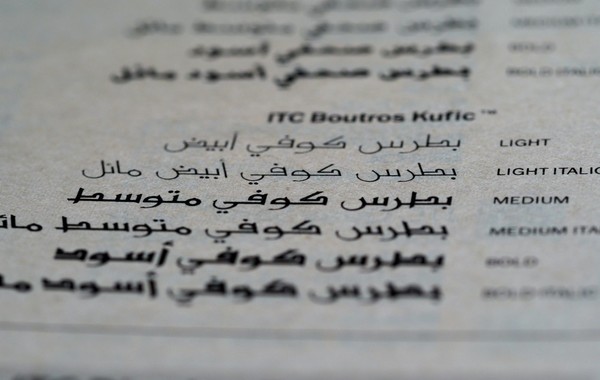 بطرس صحفي أسود BOLD
بطرس صحفي أسود مائل BOLD ITALIC
ITC Boutros Kufic™
بطرس كوفي أبيض LIGHT
بطرس كوفي أبيض مائل LIGHT ITALIC
بطرس كوفي متوسط MEDIUM
بطرس كوفي متوسط مائل MEDIUM ITA
بطرس كوفي أسود BOLD
بطرس كوفي أسود ما BOLD ITALIC